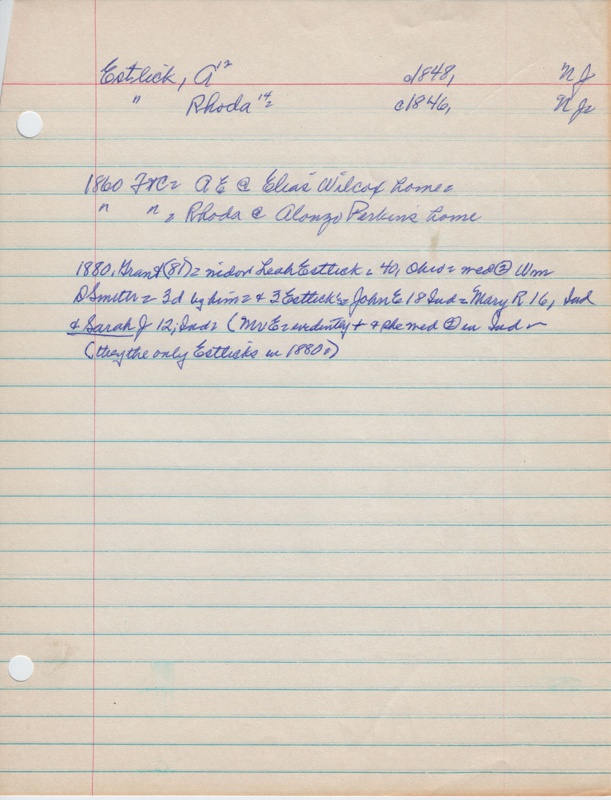 Estlick, A 12 c1848, NJ
" Rhoda 14= c1846, NJ=
1860 = A E @ Elias Wilcox home=
" " = Rhoda @ Alonzo Perkins home
1880, Grant (81) = widow Leah Estlick = 40, Ohio = med ② Wm
D Smith = 3d by him = + 3 Estlick's = John E 18 Ind = Mary R 16, Ind
& Sarah J 12, Ind = (Mr E = evidently + & she med ② in Ind
(they the only Estlicks in 1880=)